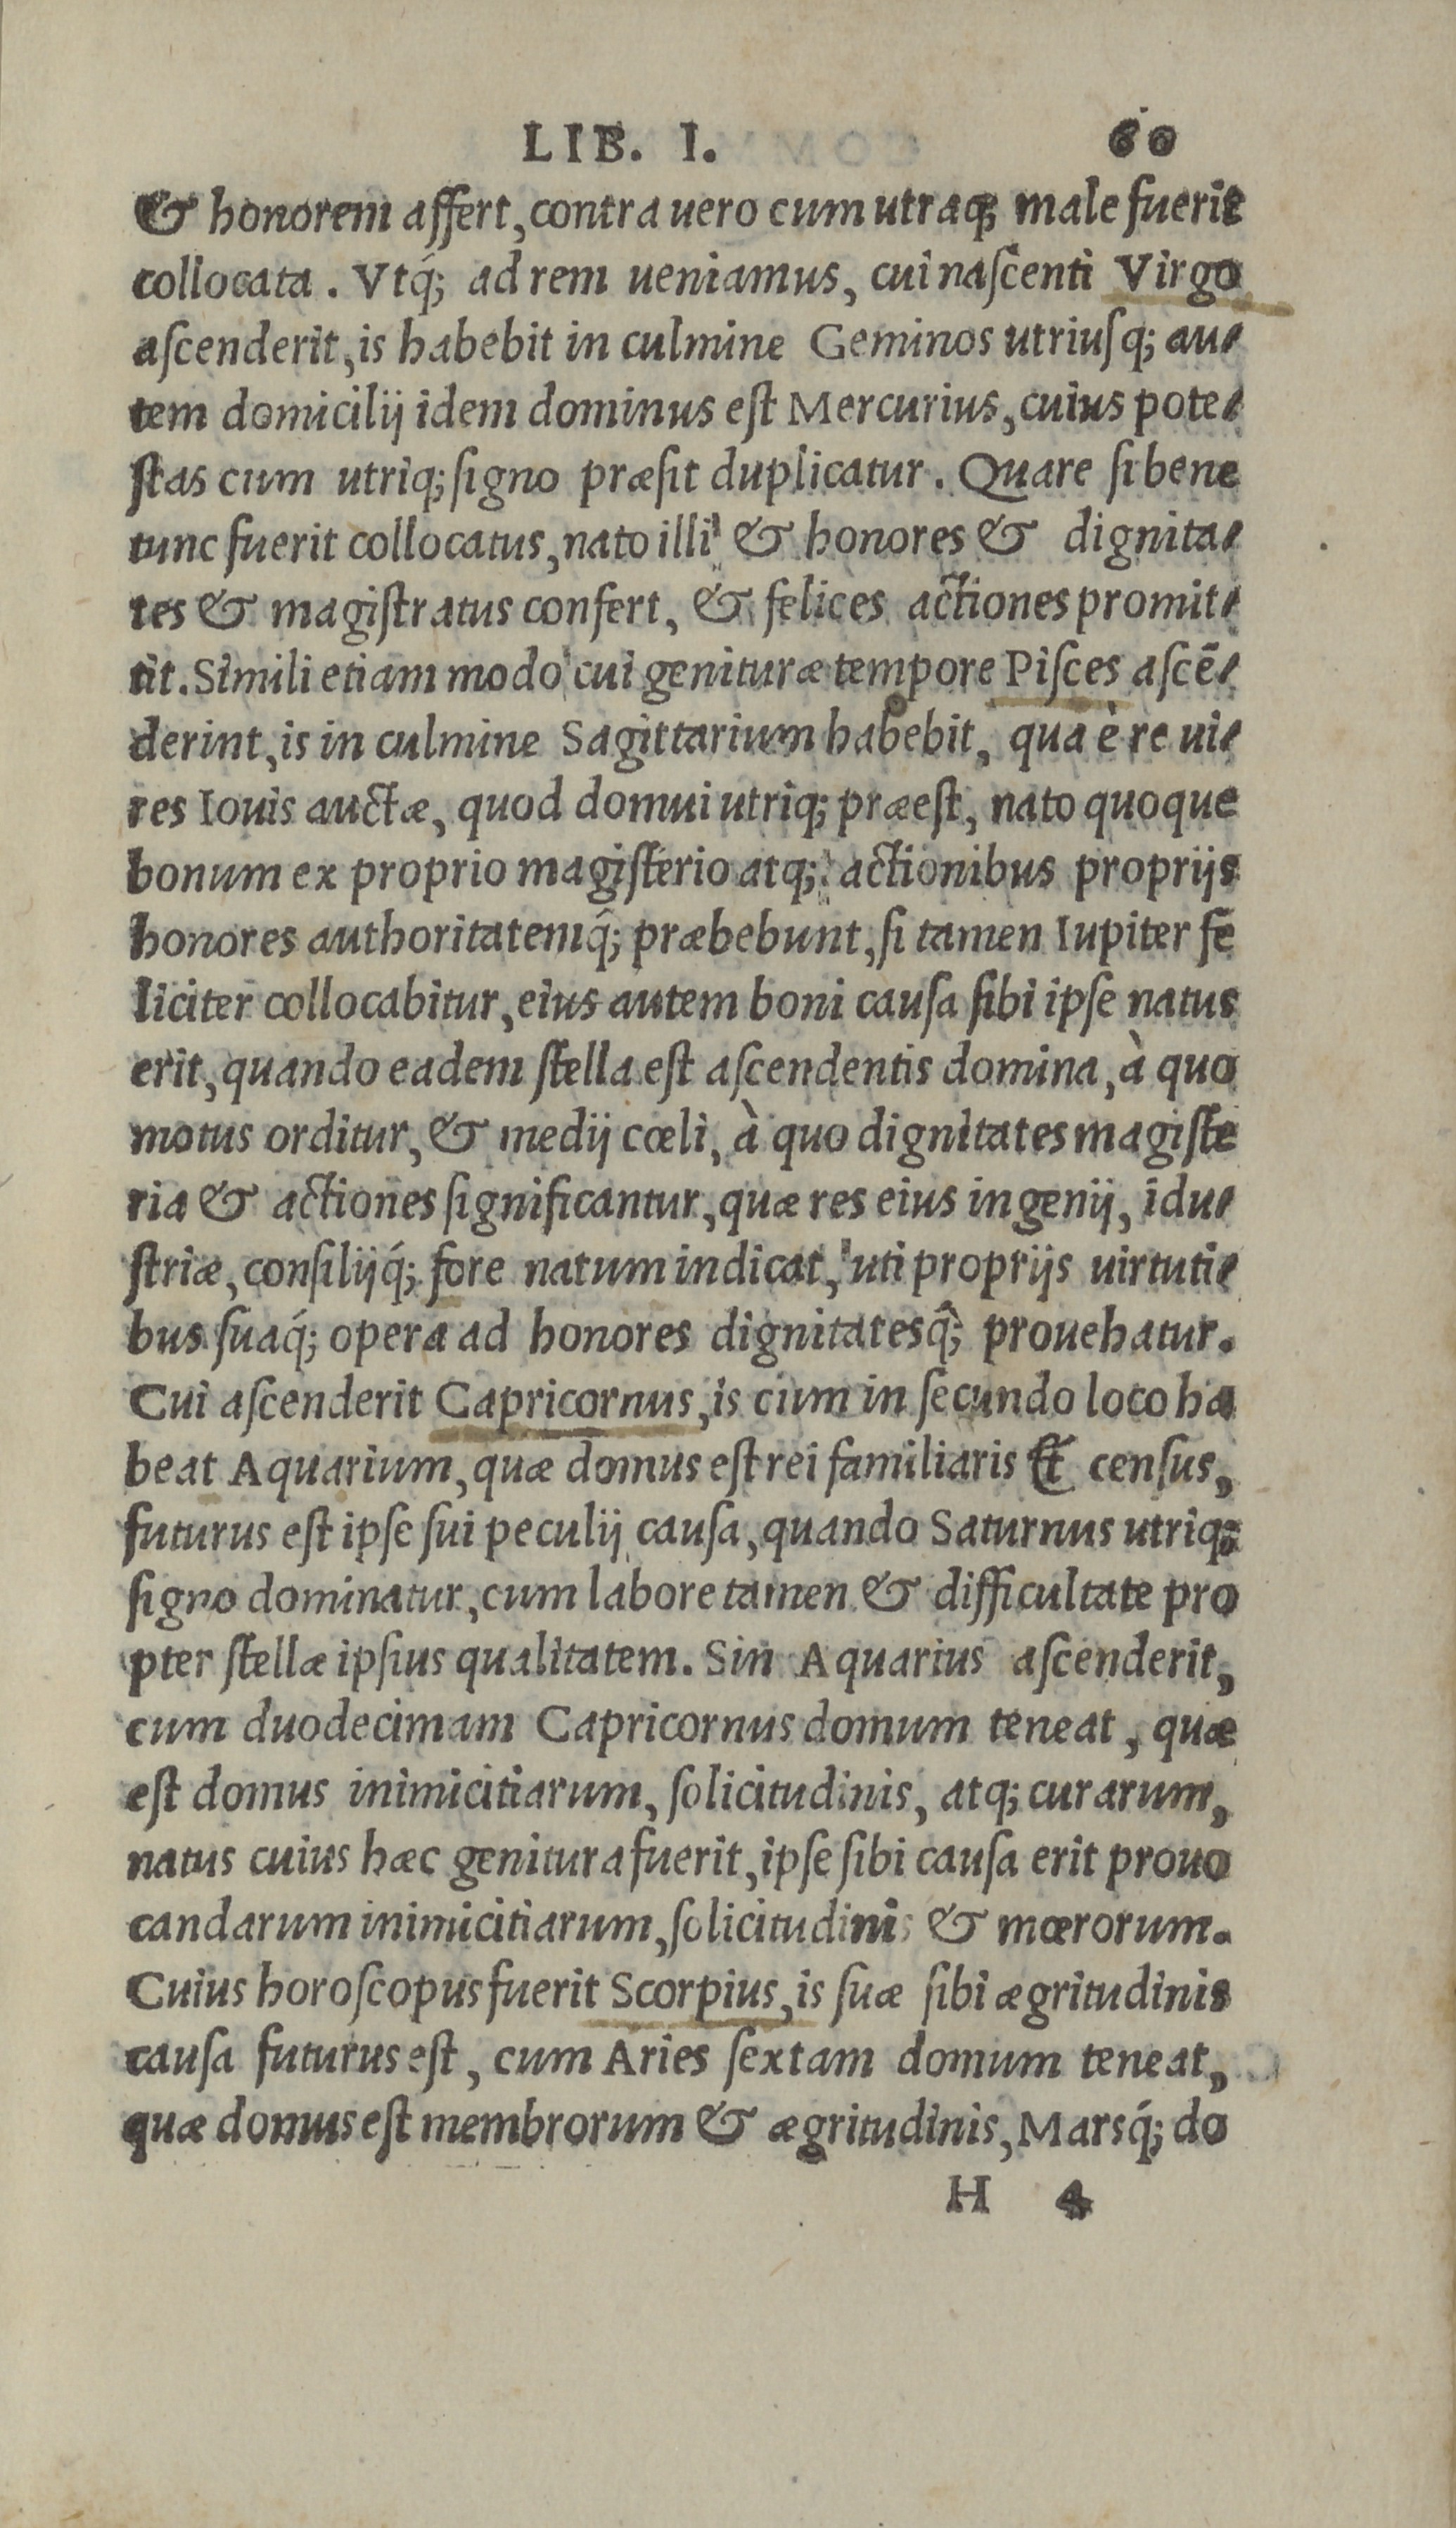 LIB. I. 60
& honorem affert, contra uero cum utraq; male fuerit
collocata. Vtq́; ad rem ueniamus, cui naſcenti Virgo
aſcenderit, is habebit in culmine Geminos utriuſq; au-
tem domicilij idem dominus eſt Mercurius, cuius pote-
ſtas cum utriq; ſigno præſit duplicatur. Quare ſi bene
tunc fuerit collocatus, nato illi & honores & dignita-
tes & magiſtratus confert, & felices actiones promit-
tit. Simili etiam modo cui genituræ tempore Piſces aſcē-
derint, is in culmine Sagittarium habebit, qua è re ui-
res Iouis auctæ, quod domui utriq; præeſt, nato quoque
bonum ex proprio magiſterio atq; actionibus proprijs
honores authoritatemq́; præbebunt, ſi tamen Iupiter fe
liciter collocabitur, eius autem boni cauſa ſibi ipſe natus
erit, quando eadem ſtella eſt aſcendentis domina, à quo
motus orditur, & medij cœli, à quo dignitates magiſte
ria & actiones ſignificantur, quæ res eius ingenij, īdu-
ſtriæ, conſilijq́; fore natum indicat, uti proprijs uirtuti-
bus ſuaq́; opera ad honores dignitatesq́; prouehatur.
Cui aſcenderit Capricornus, is cium in ſecundo loco ha
beat Aquarium, quæ domus eſt rei familiaris & cenſus,
futurus eſt ipſe ſui peculij cauſa, quando Saturnus utriq;
ſigno dominatur, cum labore tamen & difficultate pro
pter ſtellæ ipſius qualitatem. Sin Aquarius aſcenderit,
cum duodecimam Capricornus domum teneat, quæ
eſt domus inimicitiarum, ſolicitudinis, atq; curarum,
natus cuius hæc genitura fuerit, ipſe ſibi cauſa erit prouo
candarum inimicitiarum, ſolicitudinis & mœrorum.
Cuius horoſcopus fuerit Scorpius, is ſuæ ſibi ægritudinis
cauſa futurus eſt, cum Aries ſextam domum teneat,
quæ domus eſt membrorum & ægritudinis, Marsq́; do
H 4